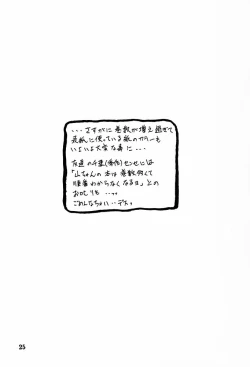 ...さすがに巻数が増え過ぎて
表紙に使っている紙のカラーも
いよいよ大変な事に...
友達の千葉(秀作)センセには
「山ちゃんの本は巻数多くて
順番わからなくなるヨ」との
お叱りも...。
ごめんなちぃ...デス。
25